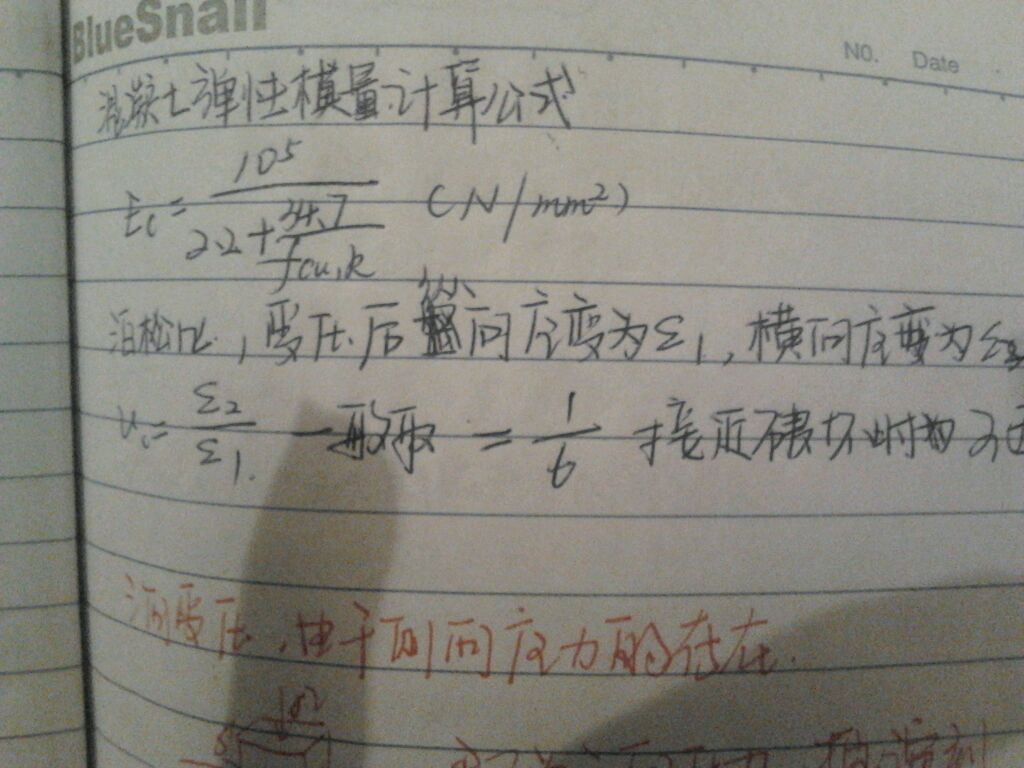 BlueSnail
NO. Date
混凝土弹性模量计算公式
Ec = 10⁵ / (2.2 + 34.7 / fcu,k) (N/mm²)
泊松比,受压后纵向应变为ε1,横向应变为ε2
νc = ε2 / ε1 一般取 = 1/6 接近破坏时为
三向受压,由于侧向应力的存在.